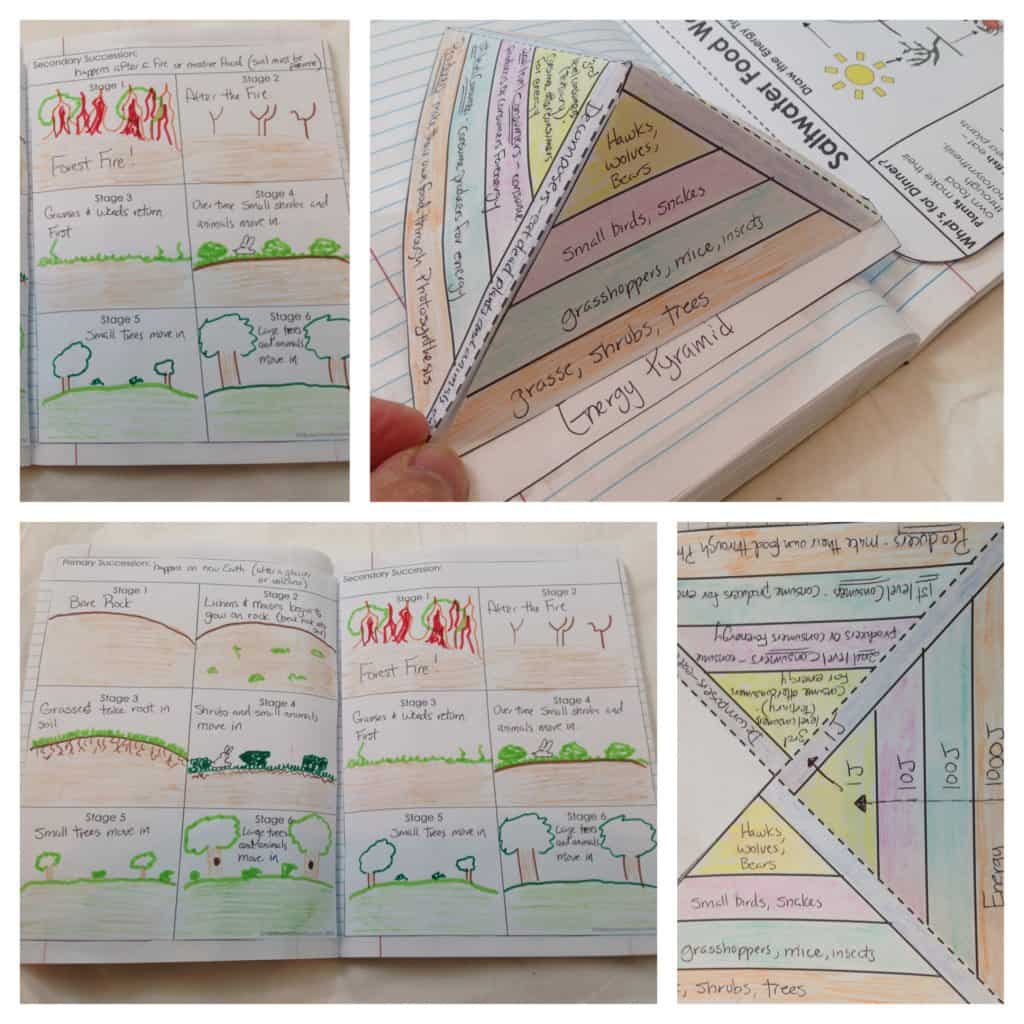 Secondary Succession:
happens after a Fire or massive flood (soil must be
Stage 1
Forest Fire!
Stage 2
After the Fire
Stage 3
Grasses & weeds return
First
Stage 4
Over time Small shrubs and
animals move in
Stage 5
Small Trees move in
Stage 6
Large trees
and animals
move in
Hawks,
wolves,
Bears
Small birds, snakes
grasshoppers, mice, insects
grasse, shrubs, trees
Energy Pyramid
Decomposers - eat dead plants and animals
Saltwater Food W
Draw the Energy
What's for Dinner?
Plants make their
own food
through
photosynthesis,
Primary Succession: happens on new Earth (after a glacier
or volcano)
Stage 1
Bare Rock
Stage 2
Lichens & Mosses begin to
grow on rock
Stage 3
Grasses take root in
soil
Stage 4
Shrubs and small animals
move in
Stage 5
Small trees move in
6
Large trees
and animals
move in
Secondary Succession:
Stage 1
Forest Fire!
Stage 2
After the Fire
Stage 3
Grasses & weeds return
First
Stage 4
Over time Small shrubs and
animals move in
Stage 5
Small Trees move in
Stage 6
Large trees
and animals
move in
Producers - make their own food through Ph
1st level Consumers - Consume producers for ene
2nd level Consumers - consume
producers or consumers for energy
3rd
level consumers
(Tertiary) -
Consume other consumers
for energy
Decomposers - eat
1J
10J
100J
1000J
Energy
Hawks,
wolves,
Bears
Small birds, snakes
grasshoppers, mice, insects
, shrubs, trees